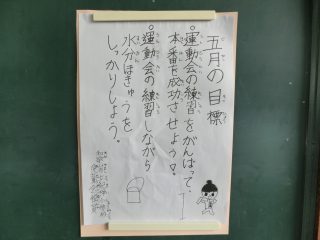 五月の目標
。運動会の練習をがんばって、
本番を成功させよう！
。運動会の練習しながら
水分ほきゅうを
しっかりしよう。